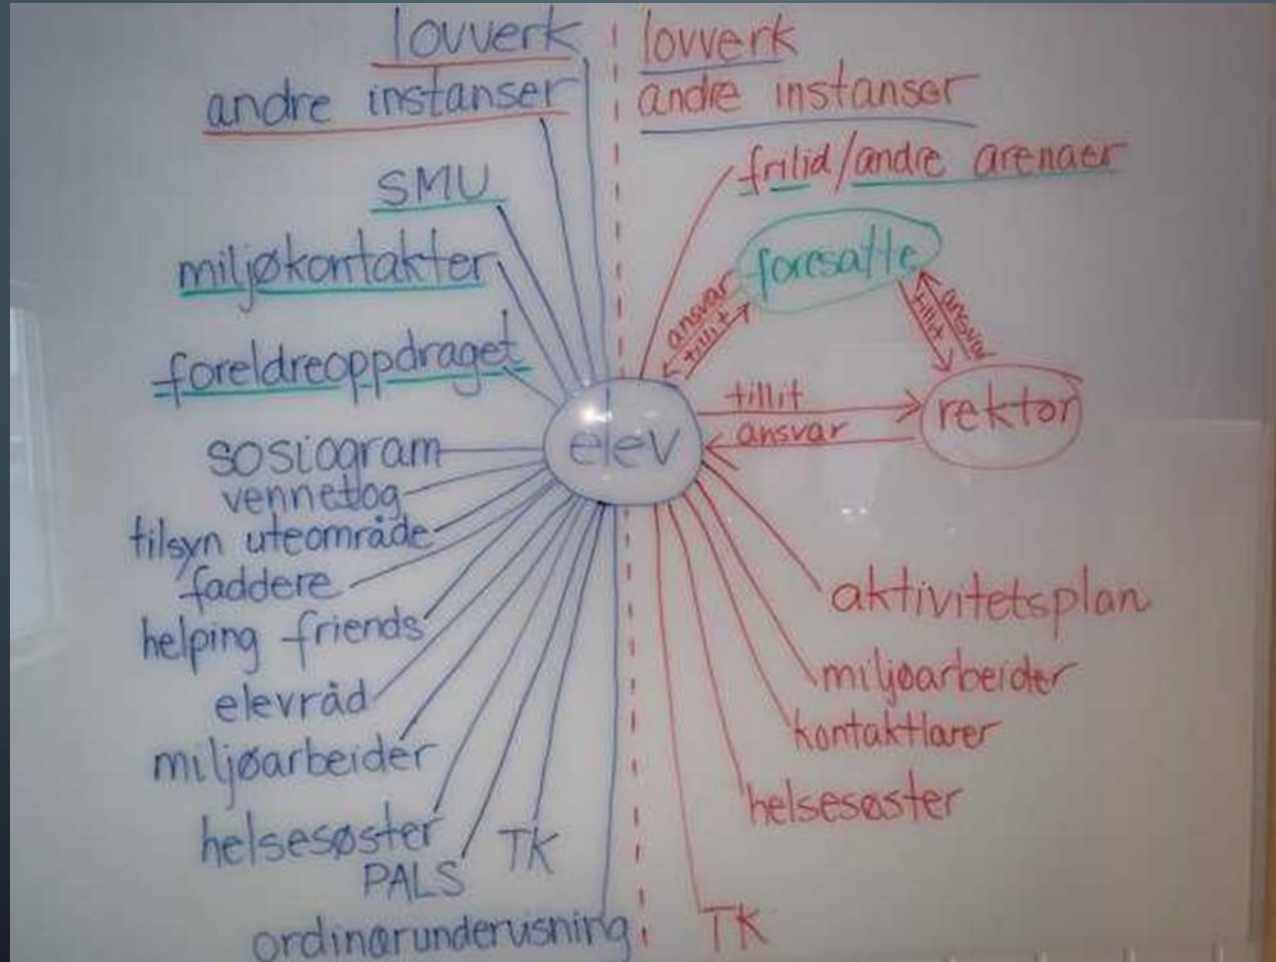 lovverk
andre instanser
SMU
miljøkontakter
foreldreoppdraget
sosiogram
vennetog
tilsyn uteområde
faddere
helping friends
elevråd
miljøarbeider
helsesøster
PALS
TK
ordinærundervisning
elev
lovverk
andre instanser
fritid/andre arenaer
foresatte
ansvar
tillit
tillit
ansvar
rektor
tillit
ansvar
aktivitetsplan
miljøarbeider
kontaktlærer
helsesøster
TK